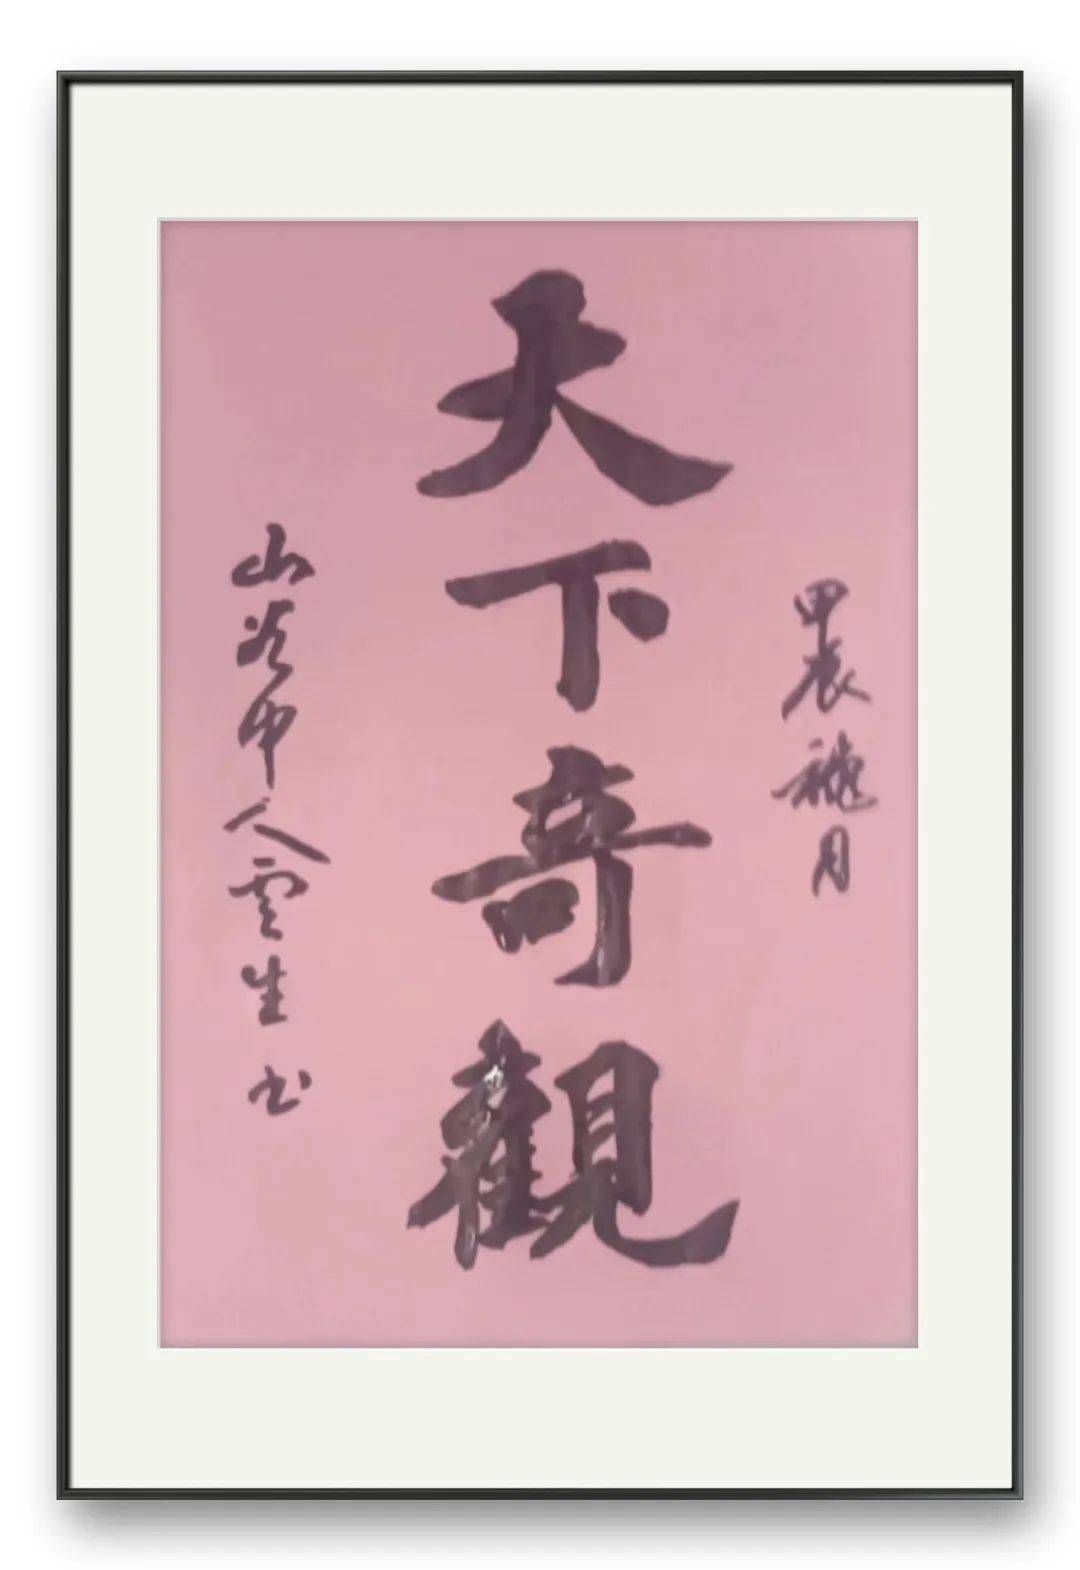 甲辰月
天下奇觀
山谷中人雲生书